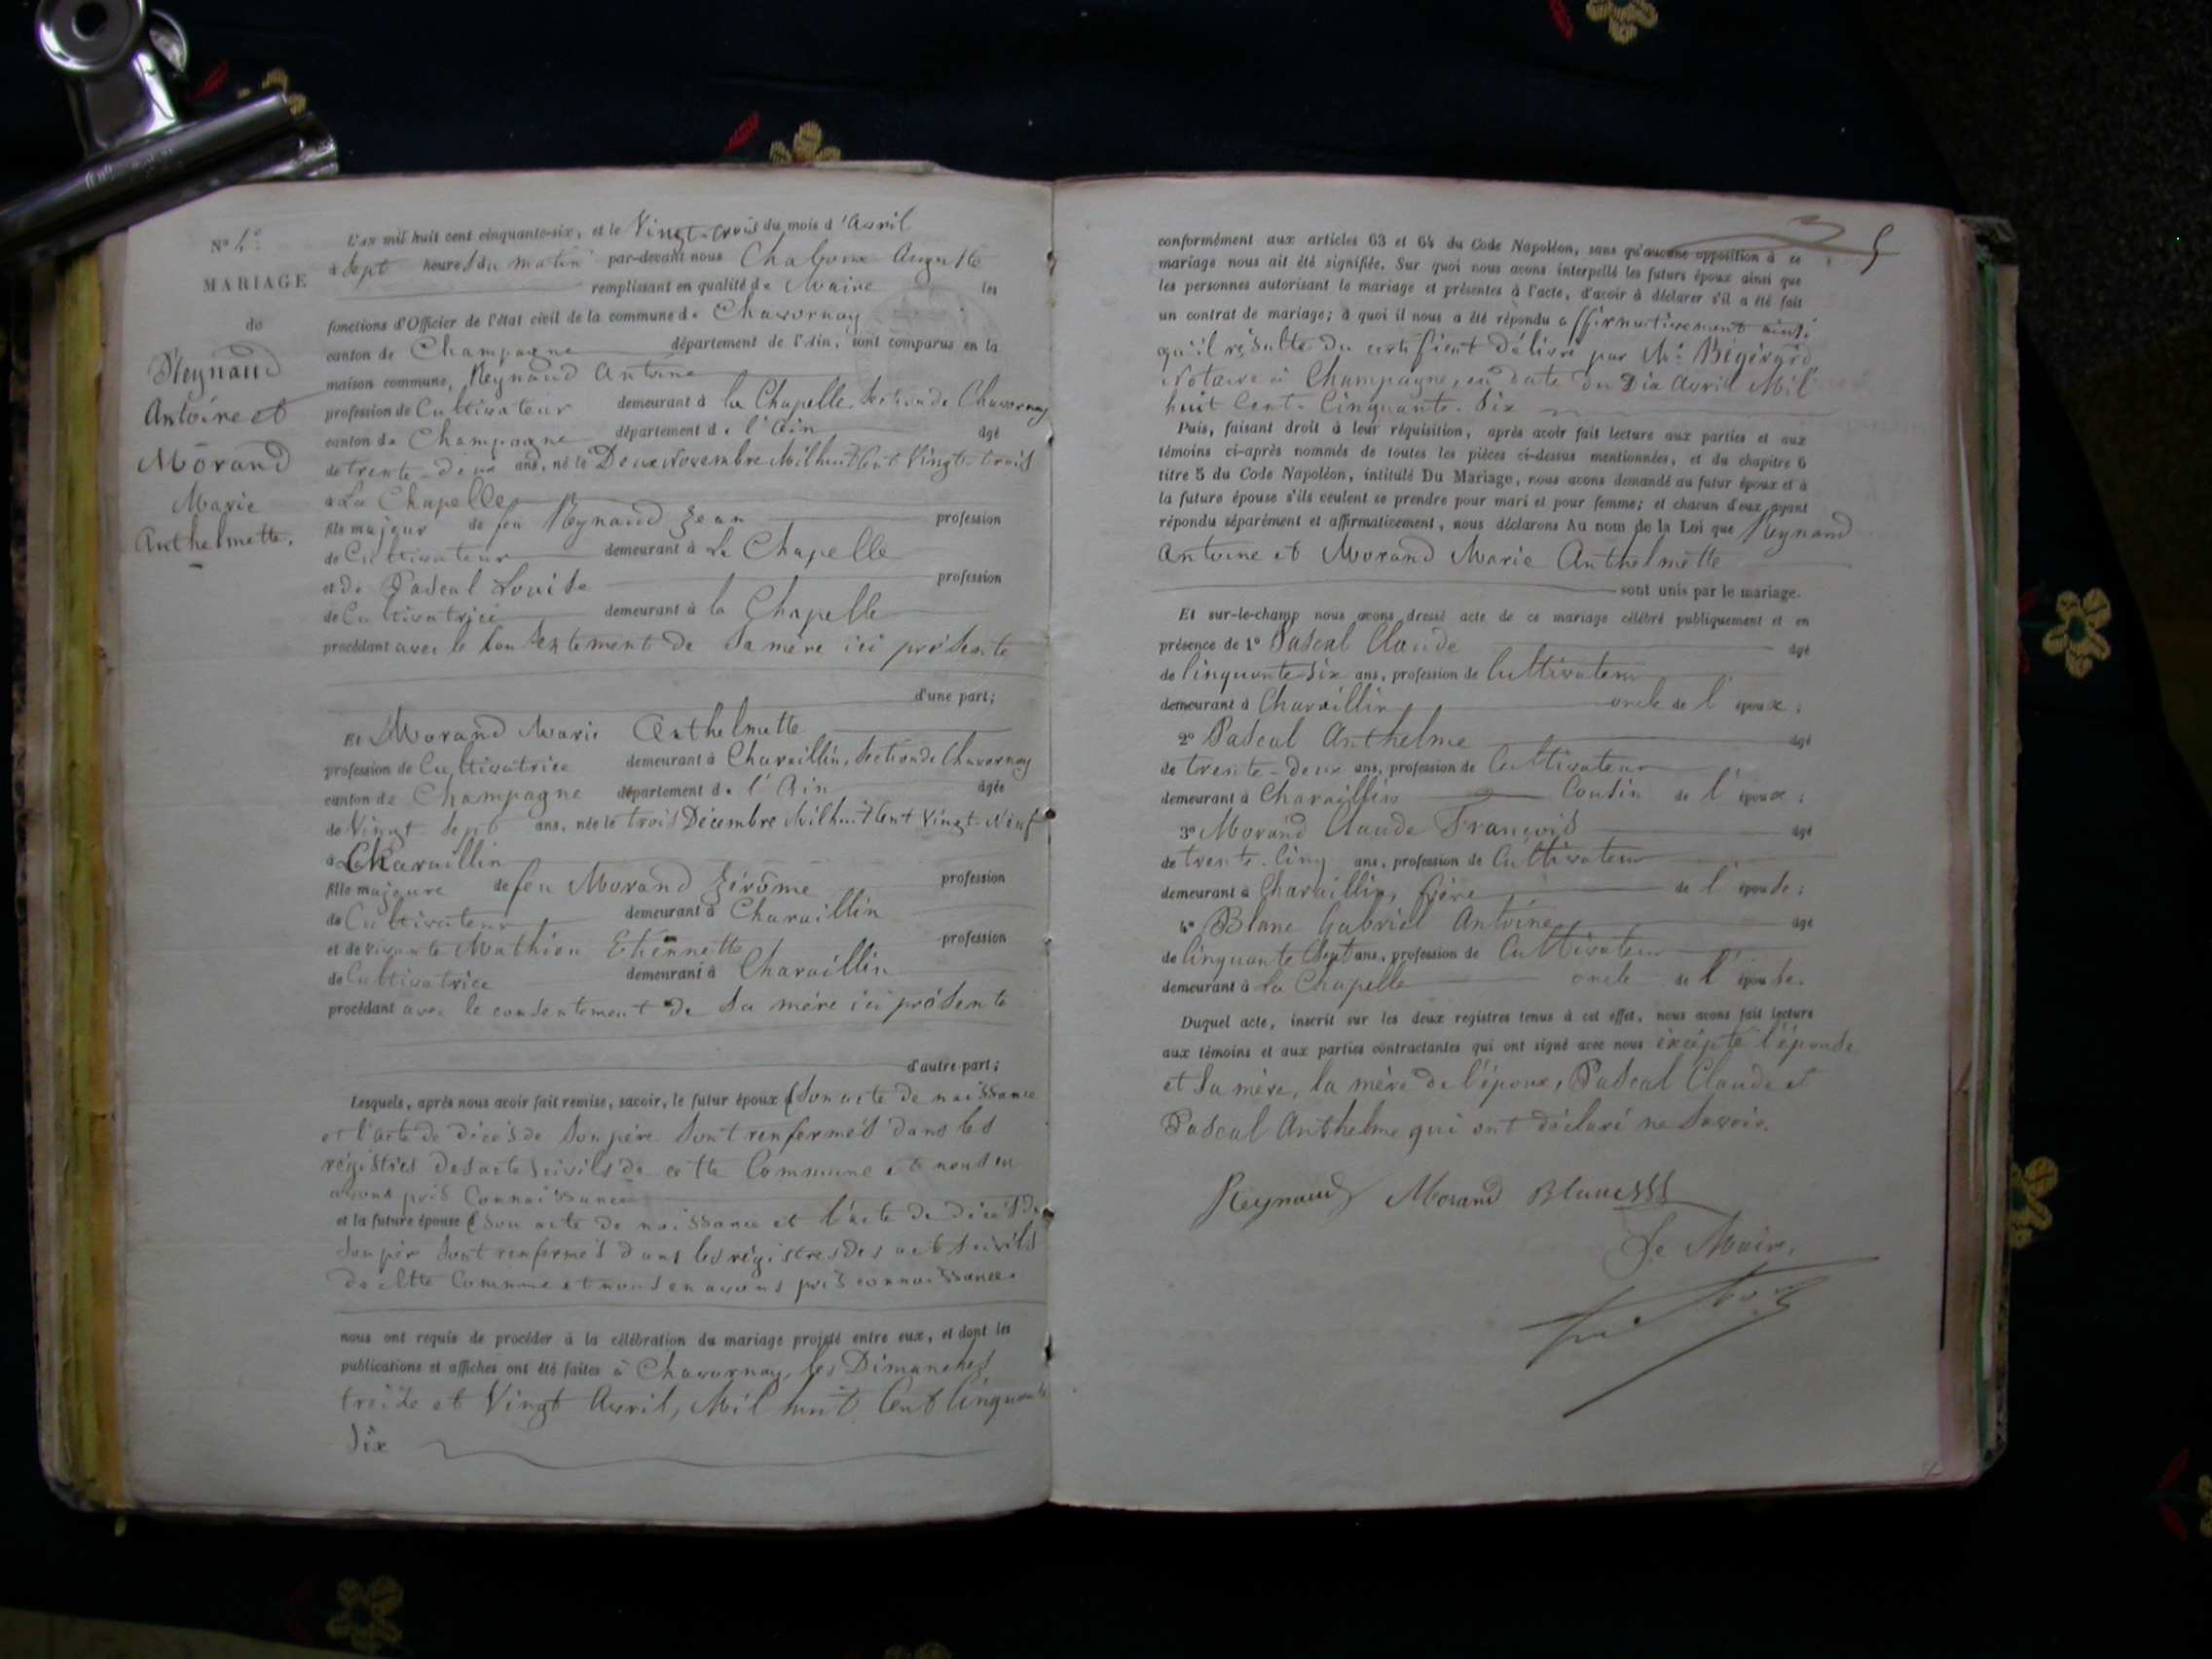 N° 4e
MARIAGE
de
Reynaud
Antoine et
Morand
Marie
Anthelmette.
L'an mil huit cent cinquante-six, et le Vingt-trois du mois d'Avril
à Sept heures du matin par-devant nous Chaboux Auguste
remplissant en qualité de Maire les
fonctions d'Officier de l'état civil de la commune de Chavornay
canton de Champagne département de l'Ain, sont comparus en la
maison commune, Reynaud Antoine
profession de Cultivateur demeurant à la Chapelle, Section de Chavornay
canton de Champagne département de l'Ain âgé
de trente-deux ans, né le Deux Novembre Mil huit Cent Vingt-trois
à La Chapelle
fils majeur de feu Reynaud Jean profession
de Cultivateur demeurant à La Chapelle
et de Pascal Louise profession
de Cultivatrice demeurant à la Chapelle
procédant avec le Consentement de Sa mère ici présente
d'une part;
Et Morand Marie Anthelmette
profession de Cultivatrice demeurant à Charaillin, Section de Chavornay
canton de Champagne département de l'Ain âgée
de Vingt-Sept ans, née le trois Décembre Mil huit Cent Vingt-Neuf
à Charaillin
fille majeure de feu Morand Jérôme profession
de Cultivateur demeurant à Charaillin
et de vivante Mathieu Etiennette profession
de Cultivatrice demeurant à Charaillin
procédant avec le consentement de Sa mère ici présente
d'autre part;
Lesquels, après nous avoir fait remise, savoir, le futur époux (Son acte de naissance
et l'acte de décès de Son père Sont renfermés dans les
régistres des actes civils de cette Commune et nous en
avons pris Connaissance
et la future épouse (Son acte de naissance et l'acte de décès de
Son père Sont renfermés dans les régistres des actes civils
de cette Commune et nous en avons pris connaissance.
nous ont requis de procéder à la célébration du mariage projeté entre eux, et dont les
publications et affiches ont été faites à Chavornay, les Dimanches
treize et Vingt Avril, Mil huit Cent Cinquante
Six
5
conformément aux articles 63 et 64 du Code Napoléon, sans qu'aucune opposition à ce
mariage nous ait été signifiée. Sur quoi nous avons interpellé les futurs époux ainsi que
les personnes autorisant le mariage et présentes à l'acte, d'avoir à déclarer s'il a été fait
un contrat de mariage; à quoi il nous a été répondu affirmativement ainsi
qu'il résulte du certificat délivré par Me Bégérard,
Notaire à Champagne, en date du Dix Avril Mil
huit Cent-Cinquante-Six
Puis, faisant droit à leur réquisition, après avoir fait lecture aux parties et aux
témoins ci-après nommés de toutes les pièces ci-dessus mentionnées, et du chapitre 6
titre 5 du Code Napoléon, intitulé Du Mariage, nous avons demandé au futur époux et à
la future épouse s'ils veulent se prendre pour mari et pour femme; et chacun d'eux ayant
répondu séparément et affirmativement, nous déclarons Au nom de la Loi que Reynaud
Antoine et Morand Marie Anthelmette
sont unis par le mariage.
Et sur-le-champ nous avons dressé acte de ce mariage célébré publiquement et en
présence de 1° Pascal Claude âgé
de Cinquante Six ans, profession de Cultivateur
demeurant à Charaillin oncle de l'époux;
2° Pascal Anthelme âgé
de trente-deux ans, profession de Cultivateur
demeurant à Charaillin Cousin de l'époux;
3° Morand Claude François âgé
de trente-Cinq ans, profession de Cultivateur
demeurant à Charaillin, frère de l'épouse;
4° Blanc Gabriel Antoine âgé
de Cinquante Sept ans, profession de Cultivateur
demeurant à La Chapelle oncle de l'épouse.
Duquel acte, inscrit sur les deux registres tenus à cet effet, nous avons fait lecture
aux témoins et aux parties contractantes qui ont signé avec nous excepté l'épouse
et Sa mère, la mère de l'époux, Pascal Claude et
Pascal Anthelme qui ont déclaré ne Savoir.
Reynaud Morand Blanc
Le Maire,